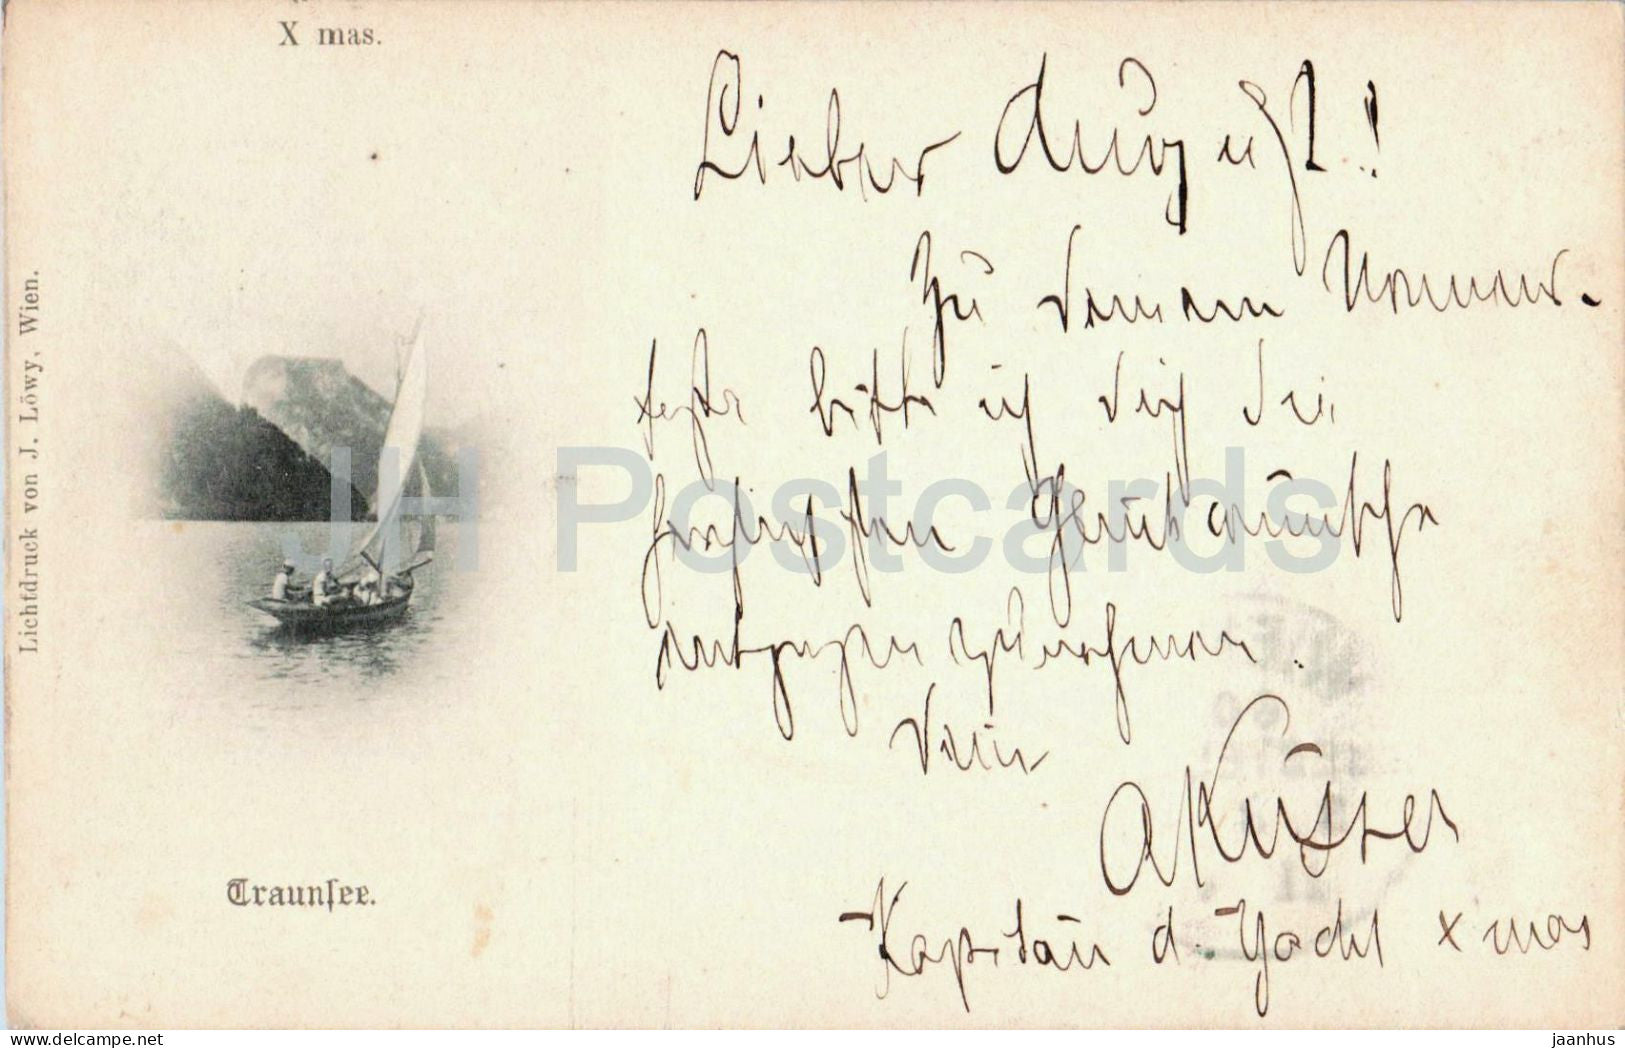 X mas.
Lichtdruck von J. Löwy, Wien.
Traunsee.
Lieber August!
Zu Deinem Namens-
feste bitte ich Dich die
herzlichsten Glückwünsche
entgegen zu nehmen.
Dein
AKusser
Kapitän d. Yacht X mas
JH Postcards
delcampe.net
jaanhus